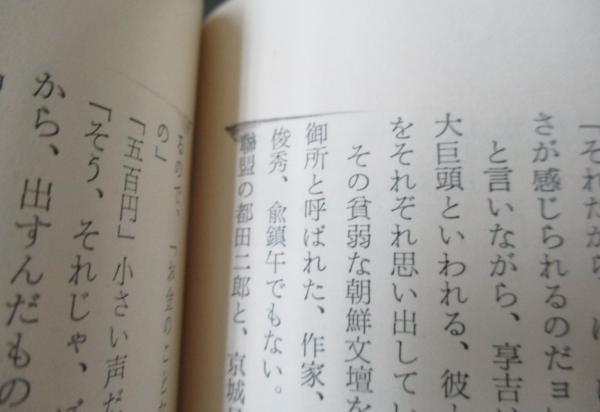 「それだから、
さが感じられるのだヨ
と言いながら、享吉
大巨頭といわれる、彼
をそれぞれ思い出してい
その貧弱な朝鮮文壇を
御所と呼ばれた、作家、
俊秀、兪鎮午でもない。
聯盟の都田二郎と、京城
るので、「お金のこと
の」
「五百円」小さい声だ
「そう、それじゃ、
から、出すんだもの